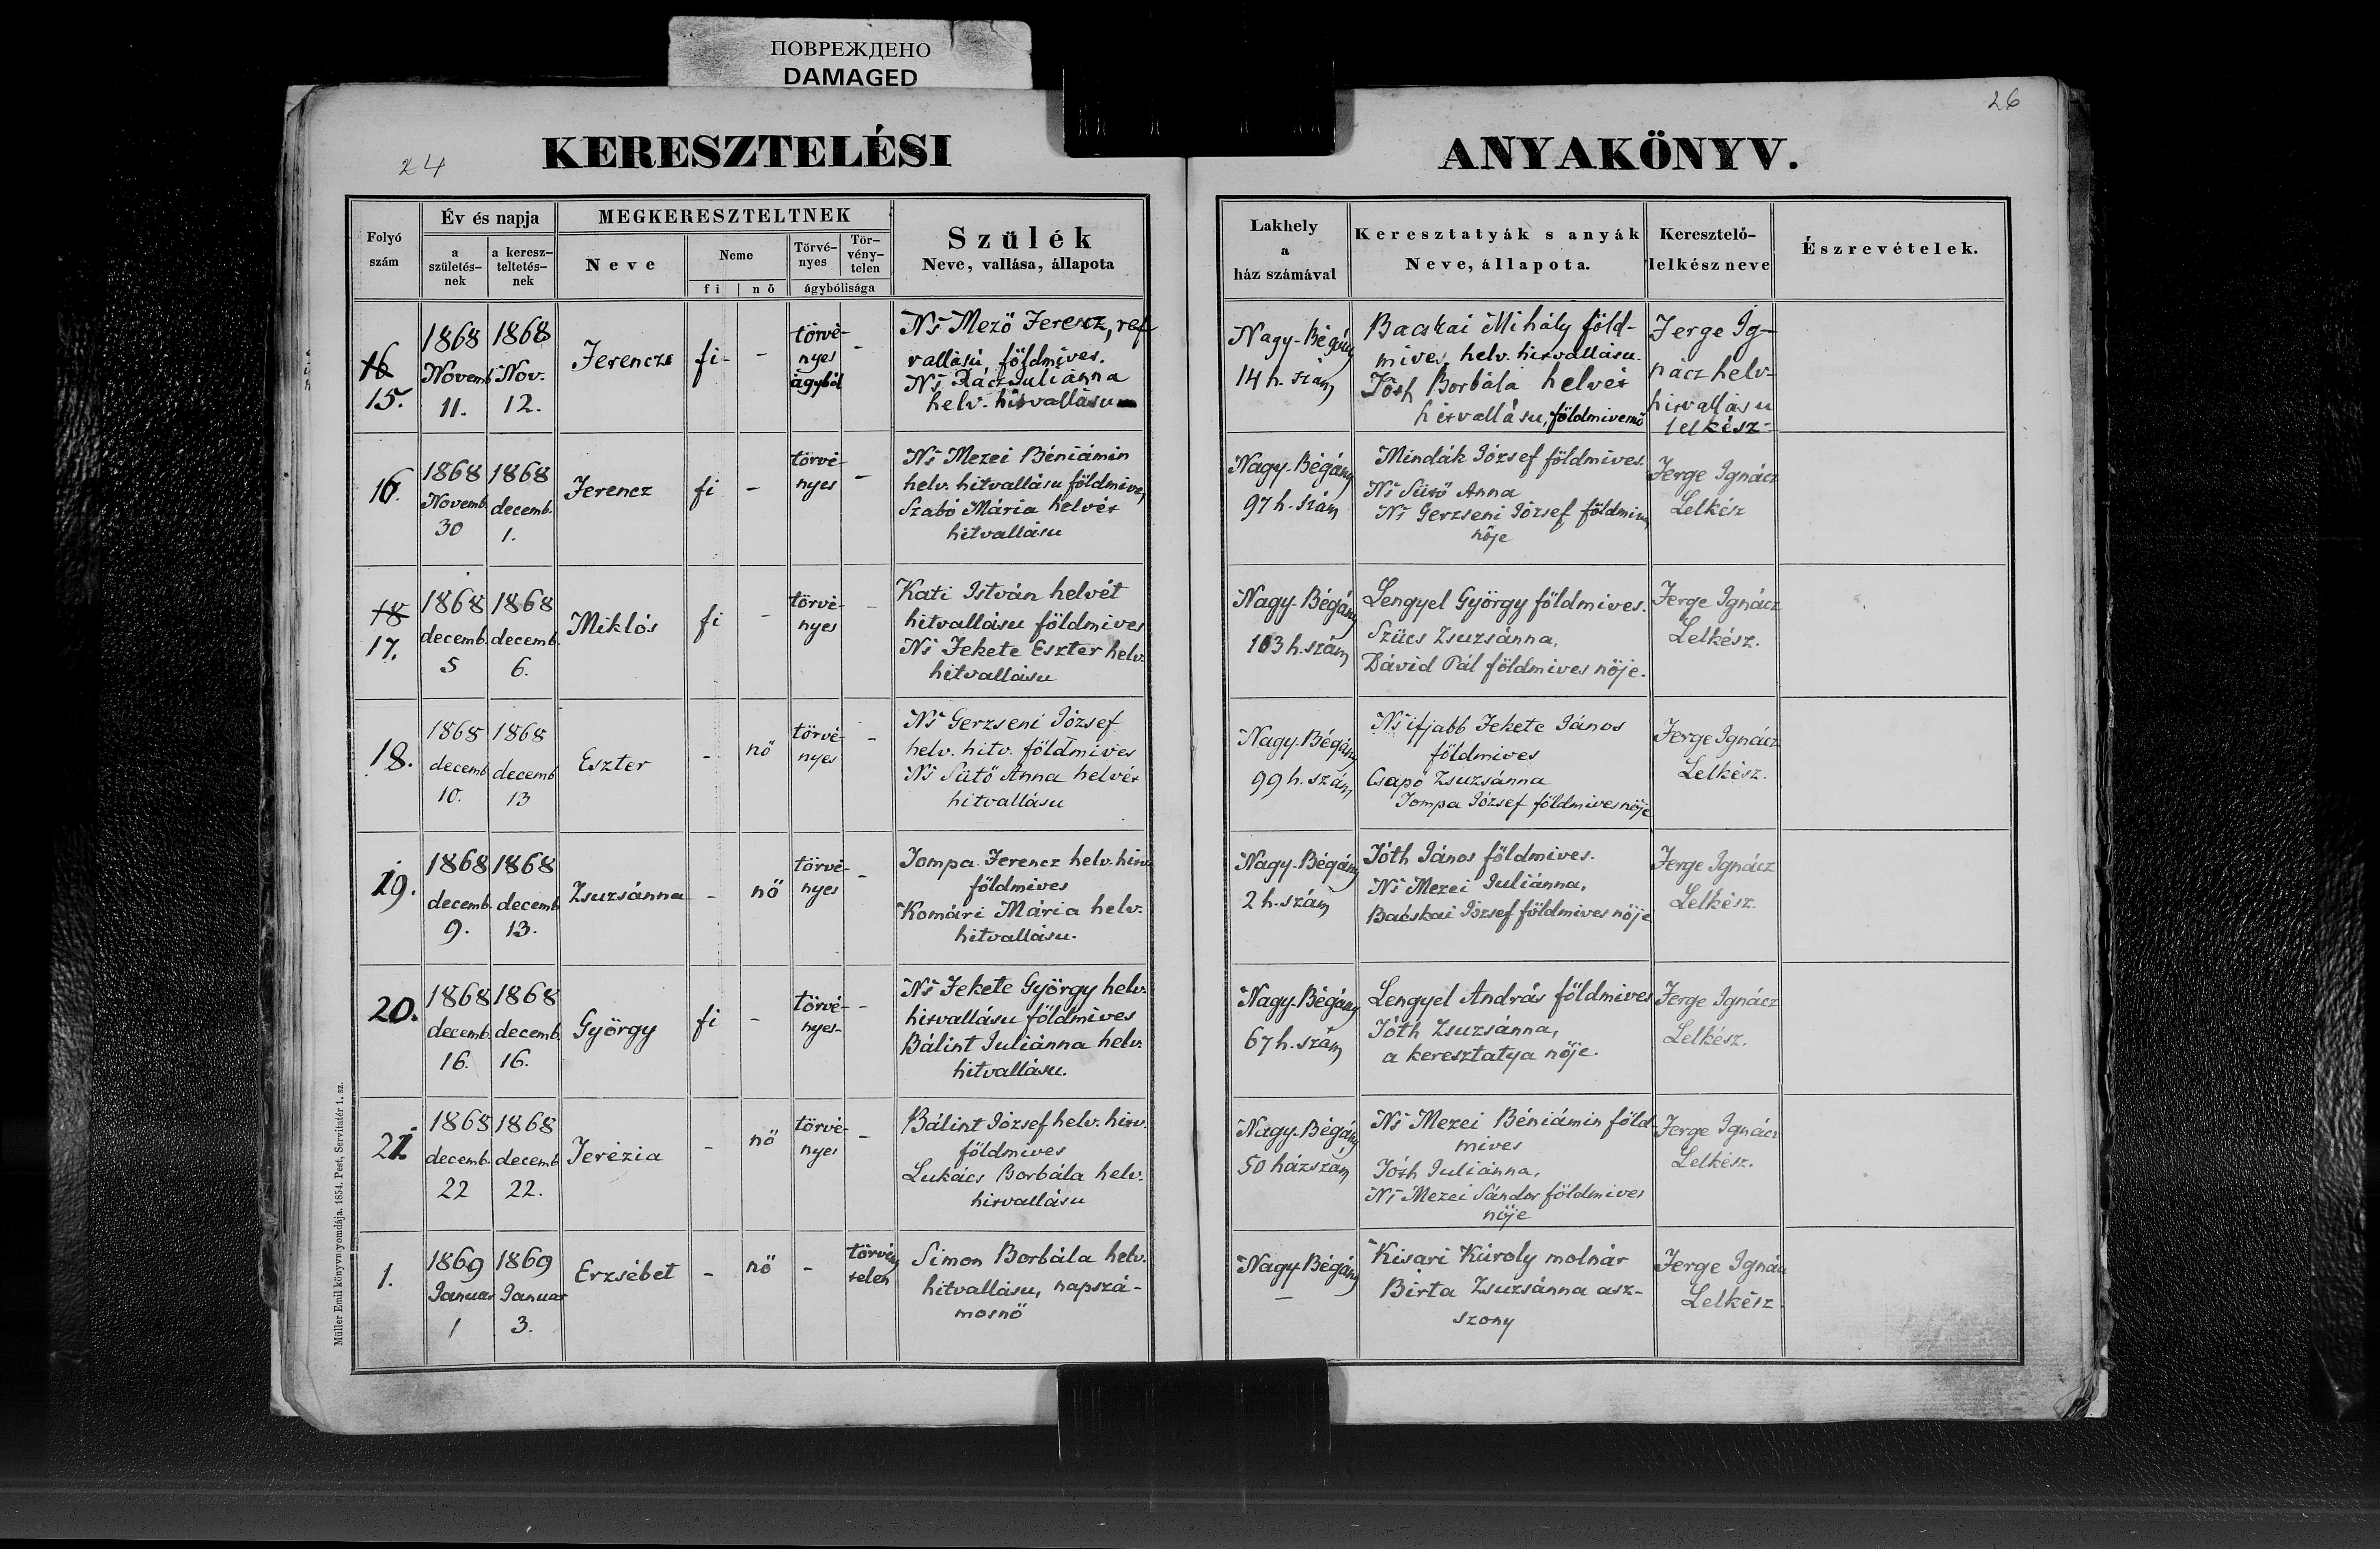 ПОВРЕЖДЕНО
DAMAGED
24
KERESZTELÉSI
ANYAKÖNYV.
26
Folyó szám
Év és napja
a születés-nek
a keresz-teltetés-nek
MEGKERESZTELTNEK
Neve
Neme
fi
nő
Törvé-nyes
Tör-vény-telen
ágybólisága
Szülék
Neve, vallása, állapota
Lakhely
a
ház számával
Keresztatyák s anyák
Neve, állapota.
Keresztelő-
lelkész neve
Észrevételek.
16
15.
1868
Novemb
11.
1868
Nov.
12.
Ferencz
fi -
-
törvé-
nyes
ágyból
-
Ns Mező Ferencz, ref
vallású, földmives.
Ns Rácz Juliánna
helv. hitvallásu
Nagy-Bégány
14 h. szám
Bacskai Mihály föld-
mives, helv. hitvallásu.
Tóth Borbála helvét
hitvallásu, földmivesnő
Ferge Ig-
nácz helv-
hitvallásu
lelkész-
16.
1868
Novemb.
30
1868
decemb.
1.
Ferencz
fi
-
törvé-
nyes
-
Ns Mezei Béniámin
helv. hitvallásu földmives,
Szabó Mária helvét
hitvallásu
Nagy-Bégány
97 h. szám
Mindák József földmives.
Ns Sütő Anna
Ns Gerzseni József földmives
nője
Ferge Ignácz
Lelkész
18
17.
1868
decemb.
5
1868
decemb.
6.
Miklós
fi
-
törvé-
nyes
-
Kati István helvét
hitvallásu földmives
Ns Fekete Eszter helv.
hitvallásu
Nagy-Bégány
103 h. szám
Lengyel György földmives.
Szücs Zsuzsánna,
Dávid Pál földmives nője.
Ferge Ignácz
Lelkész.
18.
1868
decemb
10.
1868
decemb
13
Eszter
-
nő
törvé-
nyes
-
Ns Gerzseni József
helv. hitv. földmives
Ns Sütő Anna helvét
hitvallásu
Nagy-Bégány
99 h. szám
Ns ifjabb Fekete János
földmives
Csapó Zsuzsánna
Tompa József földmives nője
Ferge Ignácz
Lelkész.
19.
1868
decemb.
9.
1868
decemb
13.
Zsuzsánna
-
nő
törvé-
nyes
-
Tompa Ferencz helv. hitv.
földmives
Komári Mária helv.
hitvallásu.
Nagy-Bégány
2 h. szám
Tóth János földmives.
Ns Mezei Juliánna,
Bacskai József földmives nője
Ferge Ignácz
Lelkész.
20.
1868
decemb.
16.
1868
decemb.
16.
György
fi
-
törvé-
nyes
-
Ns Fekete György helv.
hitvallásu földmives
Bálint Juliánna helv.
hitvallásu.
Nagy-Bégány
67 h. szám
Lengyel András földmives
Tóth Zsuzsánna,
a keresztatya nője.
Ferge Ignácz
Lelkész.
21.
1868
decemb.
22
1868
decemb
22.
Terézia
-
nő
törvé-
nyes
-
Bálint József helv. hitv.
földmives
Lukács Borbála helv.
hitvallásu
Nagy-Bégány
50 házszám
Ns Mezei Béniámin föld-
mives
Tóth Juliánna,
Ns Mezei Sándor földmives
nője
Ferge Ignácz
Lelkész.
1.
1869
Januar
1
1869
Januar
3.
Erzsébet
-
nő
-
törvény
telen
Simon Borbála helv.
hitvallásu, napszá-
mosnő
Nagy-Bégány
—
Kisari Károly molnár
Birta Zsuzsánna asz-
szony
Ferge Ignácz
Lelkész.
Müller Emil könyvnyomdája. 1854. Pest, Servitatér 1. sz.